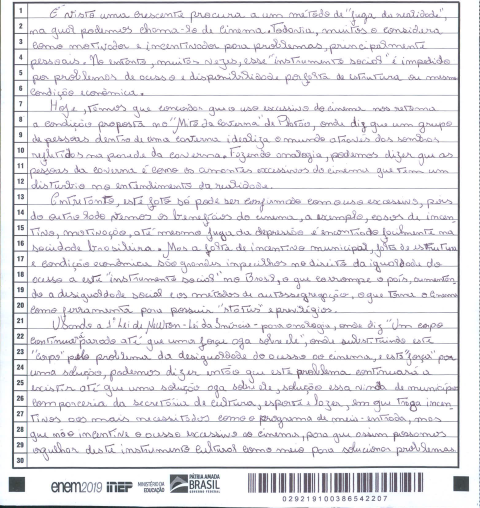 1 É visto uma crescente procura a um método de "fuga da realidade",
2 na qual podemos chama-lo de Cinema. Todavia, muitos o considera
3 como motivador e incentivador para problemas, principalmente
4 pessoais. No entanto, muitas vezes, esse "instrumento social" é impedido
5 por problemas de acesso e disponibilidade por falta de estrutura ou mesmo
6 condição econômica.
7 Hoje, temos que concordar que o uso excessivo do cinema nos retoma
8 a condição proposta no "Mito da Caverna" de Platão, onde diz que um grupo
9 de pessoas dentro de uma caverna idealiza o mundo através das sombras
10 refletidas na parede da caverna. Fazendo analogia, podemos dizer que as
11 pessoas da caverna é como os amantes excessivos do cinema que tem um
12 distúrbio no entendimento da realidade.
13 Entretanto, este fato só pode ser confirmado com o uso excessivo, pois
14 do outro lado vemos os benefícios do cinema, a exemplo, casos de incen-
15 tivo, motivação, até mesmo fuga da depressão é encontrado facilmente na
16 sociedade brasileira. Mas a falta de incentivo municipal, falta de estrutura
17 e condição econômica são grandes impecilhos no direito da igualdade do
18 acesso a este "instrumento social" no Brasil, o que corrompe o país, aumentan-
19 do a desigualdade social e os métodos de autossegregação, o que torna o cinema
20 como ferramenta para possuir "status" e privilégios.
21 Usando a 1ª Lei de Newton - Lei da Inércia - para analogia, onde diz "Um corpo
22 continua parado até que uma força aja sobre ele", onde substituindo este
23 "corpo" pelo problema da desigualdade do acesso ao cinema, e esta "força" por
24 uma solução, podemos dizer então que este problema continuará a
25 existir até que uma solução aja sobre ele, solução essa vinda do município
26 com parceria da secretária de cultura, esporte e lazer, em que traga incen-
27 tivos aos mais necessitados como o programa de meia-entrada, mas
28 que não incentive o acesso excessivo ao cinema, para que assim possamos
29 orgulhar deste instrumento cultural como meio para solucionar problemas.
30
enem2019 inep MINISTÉRIO DA EDUCAÇÃO PÁTRIA AMADA BRASIL GOVERNO FEDERAL
029219100386542207